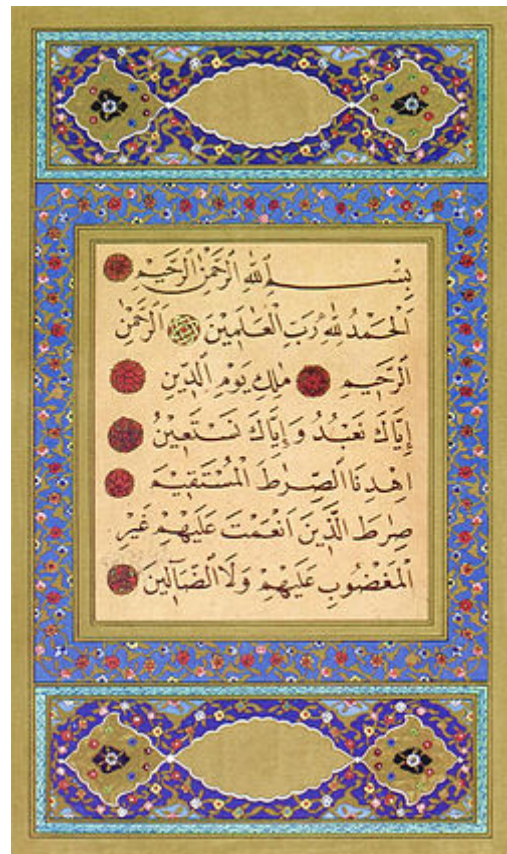 بِسْمِ اللهِ الرَّحْمٰنِ الرَّحِيْمِ
اَلْحَمْدُ لِلّٰهِ رَبِّ الْعَالَمِيْنَ اَلرَّحْمٰنِ
الرَّحِيْمِ مٰلِكِ يَوْمِ الدِّيْنِ
إِيَّاكَ نَعْبُدُ وَإِيَّاكَ نَسْتَعِيْنُ
اِهْدِنَا الصِّرٰطَ الْمُسْتَقِيْمَ
صِرٰطَ الَّذِيْنَ اَنْعَمْتَ عَلَيْهِمْ غَيْرِ
الْمَغْضُوبِ عَلَيْهِمْ وَلَا الضَّآلِّيْنَ